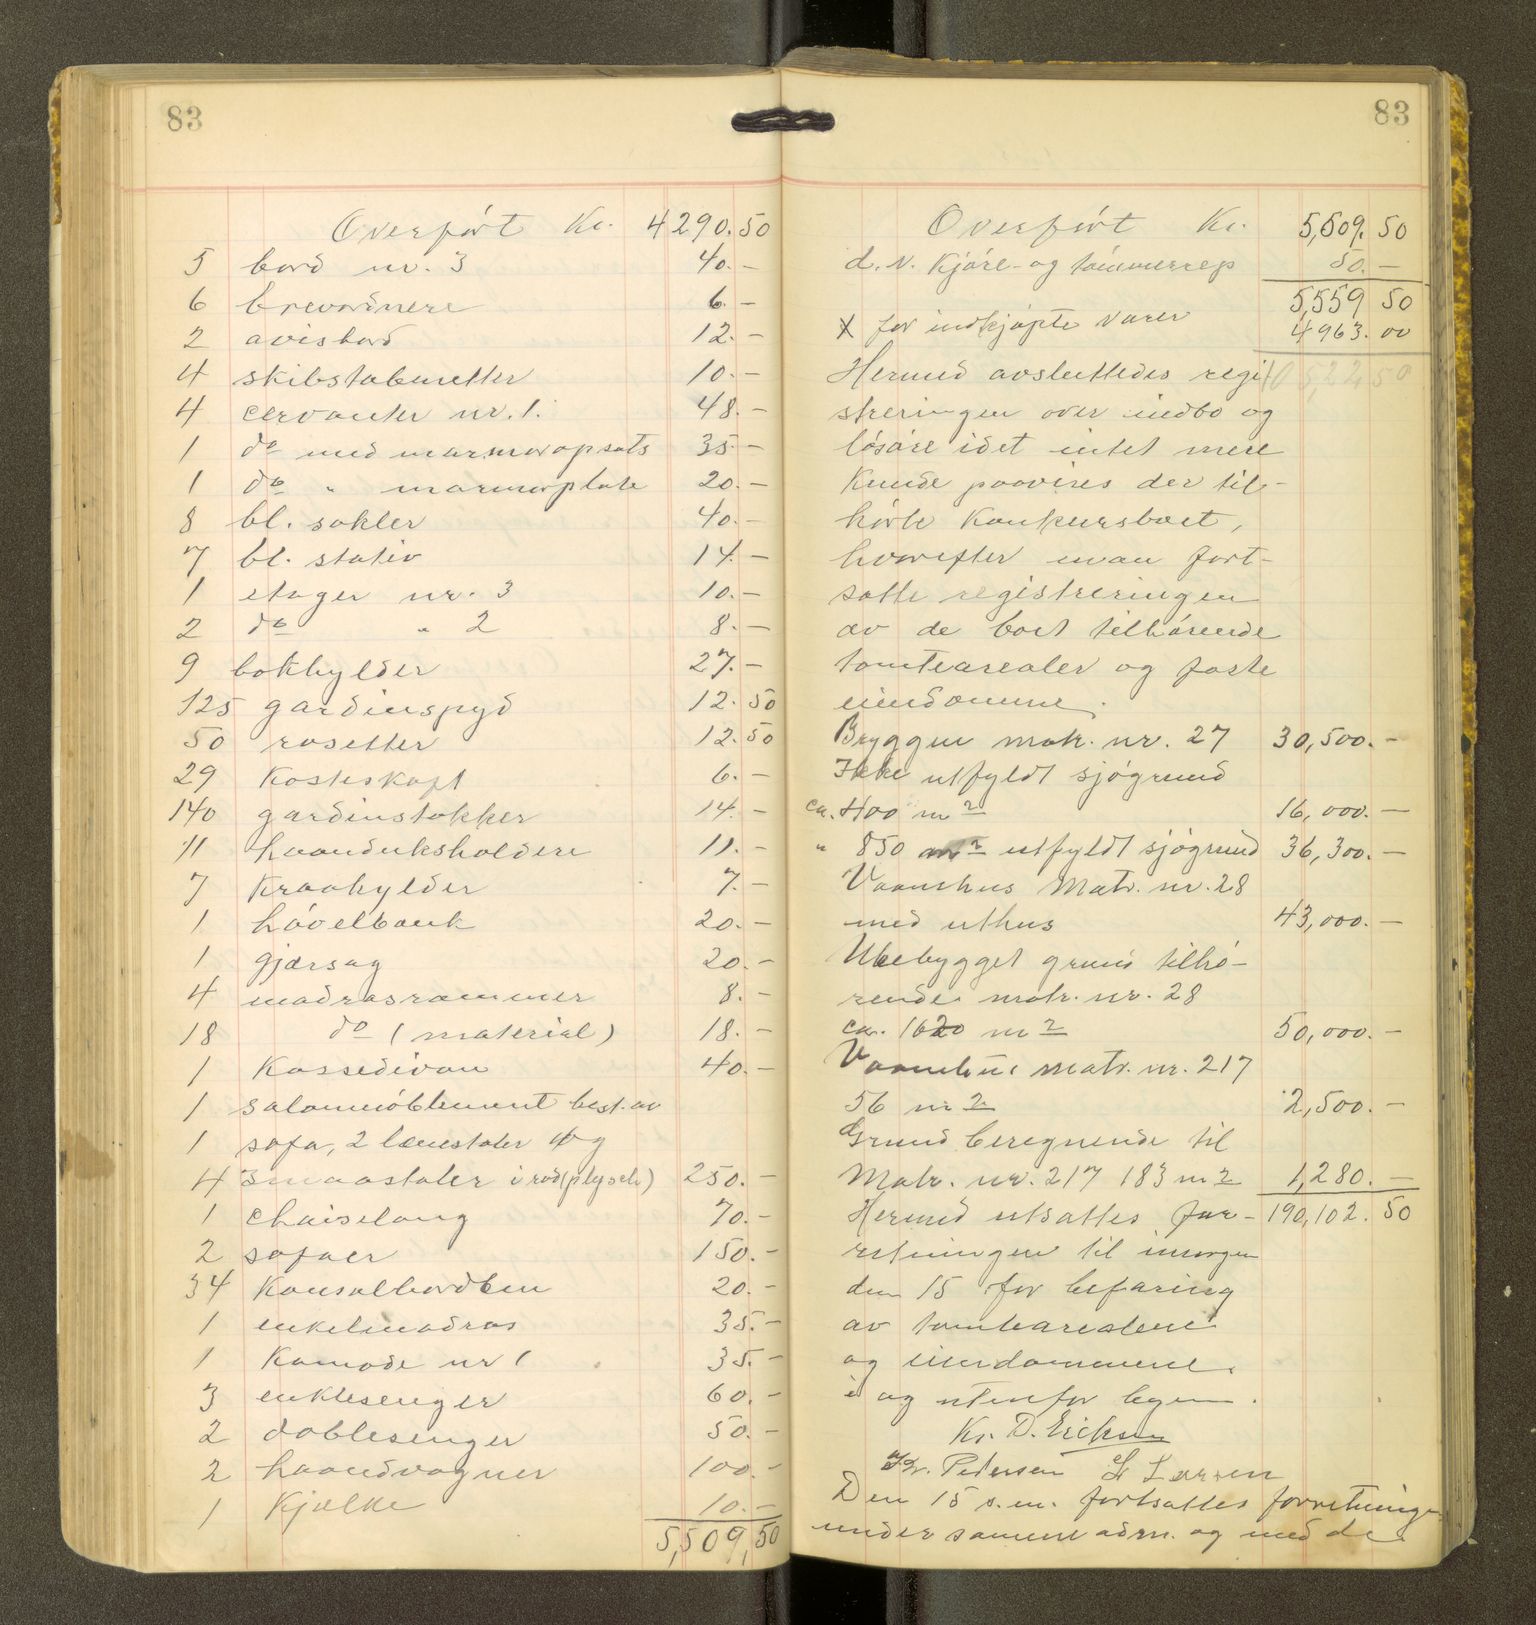 83
Overført Kr. 4290.50
5 bord nr. 3 40.-
6 brevordnere 6.-
2 avisbord 12.-
4 skibstaburetter 10.-
4 cervanter nr. 1. 48.-
1 do med marmoropsats 35.-
1 do " marmorplate 20.-
8 bl. sokler 40.-
7 bl. stativ 14.-
1 etager nr. 3 10.-
2 do " 2 8.-
9 bokhylder 27.-
125 gardinspyd 12.50
50 rosetter 12.50
29 Kosteskaft 6.-
140 gardinstokker 14.-
11 haanduksholdere 11.-
7 Kraahylder 7.-
1 høvelbenk 20.-
1 gjærsag 20.-
4 madrasrammer 8.-
18 do (material) 18.-
1 Kassedivan 40.-
1 salonmöblement best. av
1 sofa, 2 lænestoler og
4 smaastoler i rød (plysch) 250.-
1 Chaiselong 70.-
2 sofaer 150.-
34 Konsolbordben 20.-
1 enkelmadras 35.-
1 Komode nr 1 35.-
3 enklesenger 60.-
2 doblesenger 50.-
2 haandvogner 100.-
1 Kjælke 10.-
5,509,50
83
Overført Kr. 5,509.50
d. v. Kjøre- og tömmerrep 50.-
5,559 50
X for indkjøpte varer 4963.00
Hermed avsluttedes regi- 10522 50
streringen over indbo og
løsøre idet intet mere
Kunde paavises der til-
hørte Konkursboet,
hvorefter man fort-
satte registreringen
av de boet tilhørende
tomtearealer og faste
eiendomme.
Bryggen matr. nr. 27 30,500.-
Ikke utfyldt sjøgrund
ca. 400 m2 16,000.-
" 850 m2 utfyldt sjøgrund 36,300.-
Vaanhus Matr. nr. 28
med uthus 43,000.-
Ubebygget grund tilhø-
rende matr. nr. 28
ca. 1620 m2 50,000.-
Vaanhus matr. nr. 217
56 m2 2,500.-
Grund beregnende til
Matr. nr. 217 183 m2 1,280.-
Hermed utsattes for- 190,102.50
retningen til imorgen
den 15 for befaring
av tomtearealene
og eiendommene
i og utenfor byen.
Kr. D. Ericksen
Fr. Petersen L Larsen
Den 15 s.m. fortsattes forretningen
under samme adm. og med de